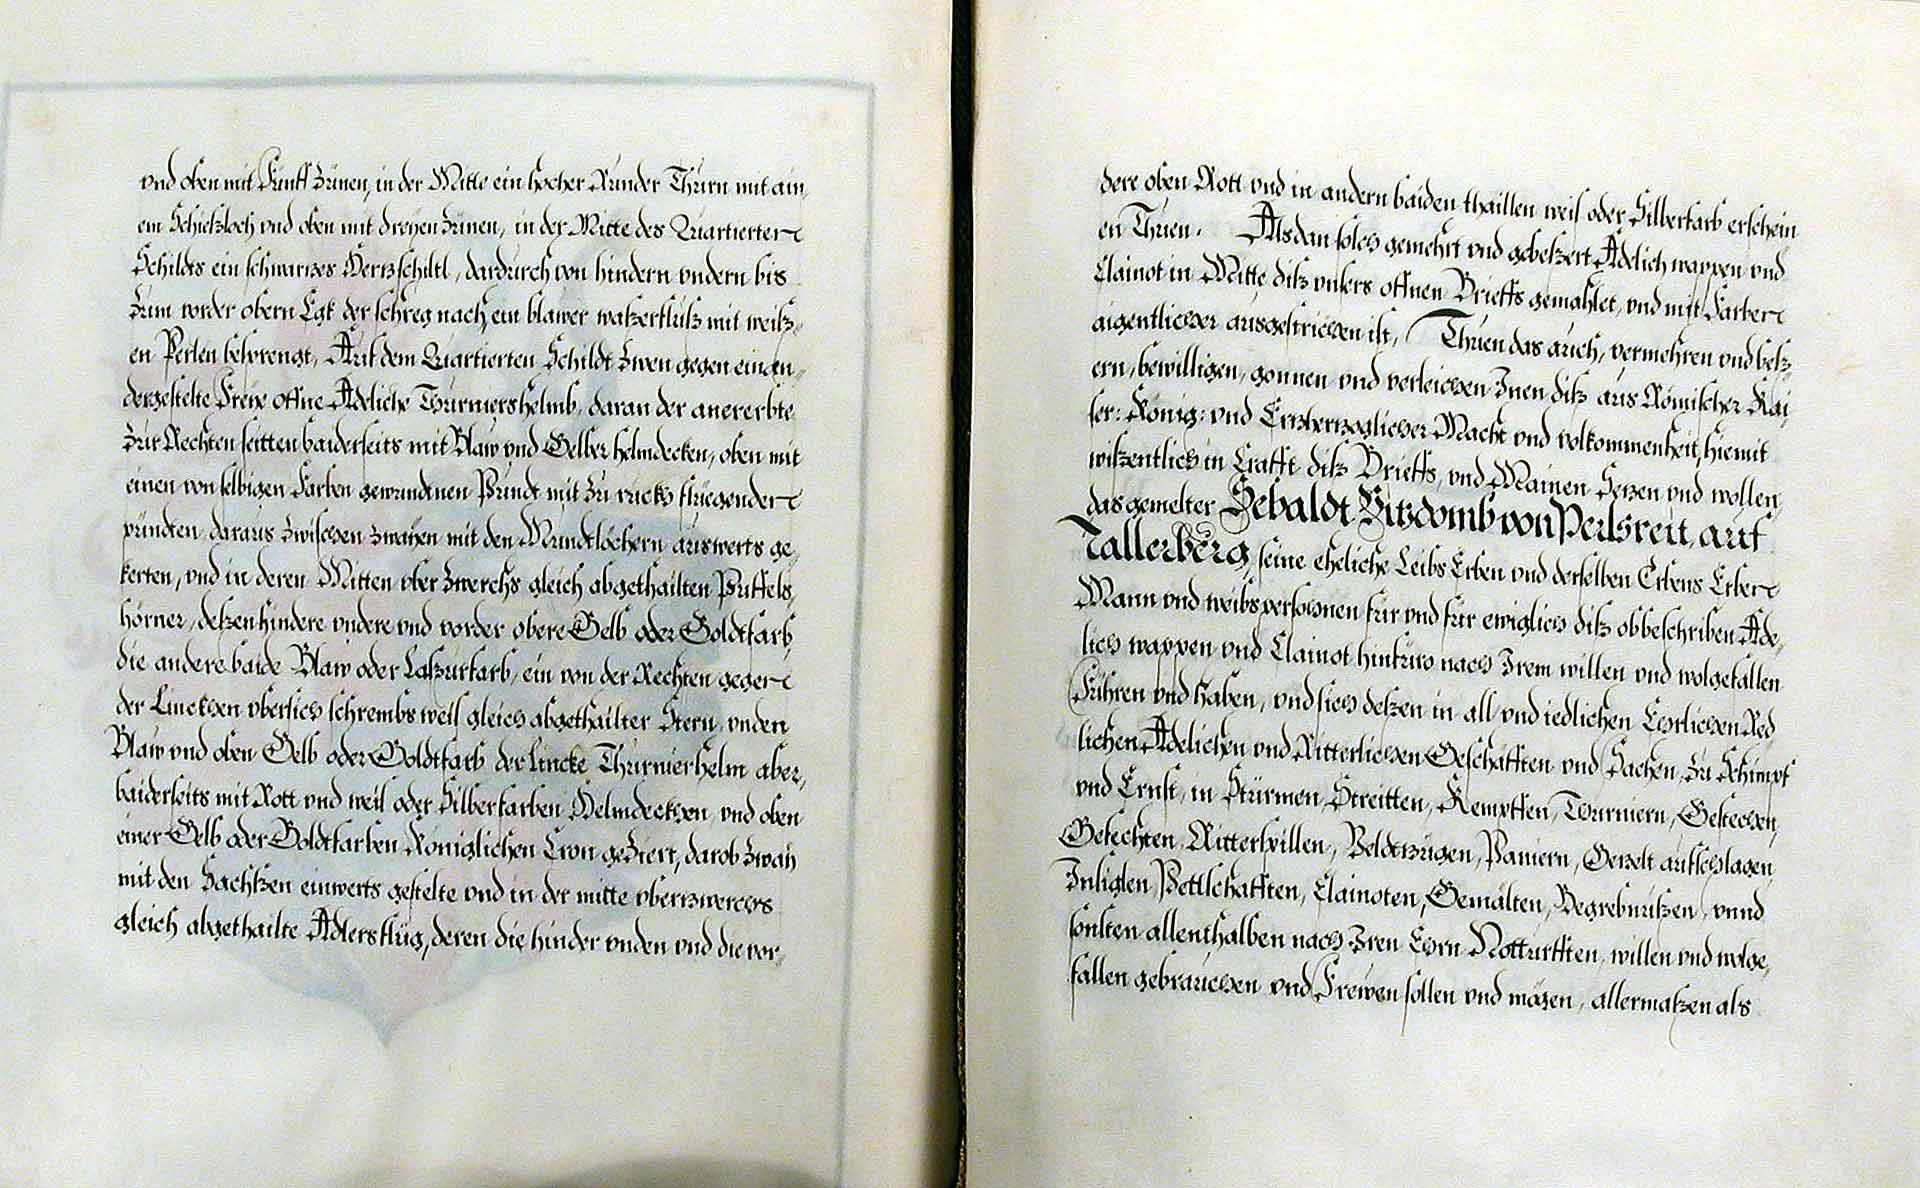 vnd oben mit Fünff Zünen, in der Mitte ein hocher Runder Thurn mit ain,
em Schießloch vnd oben mit dreyen Zünen, in der Mitte des Quartierten
Schildts ein schwarzes Hertzschiltl, dardurch von hindern vndern bis
Zum vorder obern Egk der schreg nach ein blawer waßerfluß mit weiß,,
en Perlen besprengt, Auf dem Quartierten Schildt Zwen gegen einan,,
dergestelte Freye offne Adeliche Thurniershelmb, daran der anererbte
Zur Rechten seitten baiderseits mit Blaw vnd Gelber helmdecken, oben mit
einen von selbigen Farben gewundtnen Pundt mit Zu ruckh fluegenden
pündten, daraus Zwischen Zwayen mit den Mundtlöchern auswerts ge,
kerten, vnd in deren Mitten vber Zwerchs gleich abgethailten Püffels,
hörner, deßen hindere vndere vnd vorder obere Gelb oder Goldtfarb,
die andere baide Blaw oder Laßurfarb, ein von der Rechten gegen
der Linckhen vbersich schrembs weiß gleich abgethailter Stern, vnden
Blaw vnd oben Gelb oder Goldtfarb der lincke Thurnierhelm aber,
baiderseits mit Rott vnd weiß oder Silberfarben Helmdeckhen, vnd oben
einer Gelb oder Goldtfarben Königlichen Cron geZiert, darob Zwaÿ
mit den Sachßen einwerts gestelte vnd in der mitte vberzwerchs
gleich abgethailte Adlersflüg, deren die hinder vnden vnd die vor,,
dere oben Rott vnd in andern baiden thaillen weiß oder Silberfarb erschein
en Thuen. Alsdan solch gemehrt vnd gebeßert Adelich wappen vnd
Clainot in Mitte diß vnsers offnen Brieffs gemahlet, vnd mit Farben
aigentlicher ausgestrichen ist, Thuen das auch, vermehren vnd beß,,
ern, bewilligen, gonnen vnd verleichen Inen diß aus Römischer Kai
ser: König: vnd Ertzhertzoglicher Macht vnd volkommenheit, hiemit
wißentlich in Crafft diß Brieffs, vnd Mainen Setzen vnd wollen,
das gemelter Sebaldt Vitzdomb von Perlsreit, auf
Tallerberg, seine eheliche Leibs Erben vnd derselben Erbens Erben
Mann vnd weibspersohnen für vnd für ewiglich diß obbeschriben Ade,
lich wappen vnd Clainot hinfüro nach Irem willen vnd wolgefallen
Führen vnd Haben, vnd sich deßen in all vnd iedlichen Ehrlichen Red
lichen Adelichen vnd Ritterlichen Geschäfften vnd Sachen, Zu Schimpf
vnd Ernst, in Stürmen Streitten, Kempffen, Thurniern, Gestechen,
Gefechten, Ritterspillen, Veldtzügen, Paniern, Gezelt aufschlagen,
Insiglen Pettschafften, Clainoten, Gemälten, Begrebnußen, vnnd
sonsten allenthalben nach Iren Ehrn Notturfften, willen vnd wolge,
fallen gebrauchen vnd Frewen sollen vnd mögen, allermaßen als